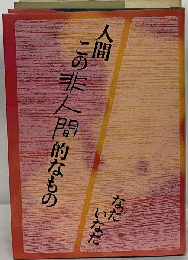 人間
この非人間的なもの
なだ
いなだ